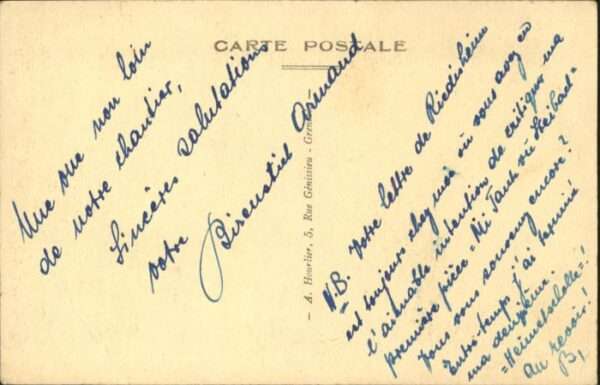 CARTE POSTALE
Une vue non loin
de notre chantier,
Sincères salutations
votre
Birenstiel Armand
— A. Hourlier, 5, Rue Génissieu - Gren
N.B. Votre lettre de Riedisheim
est toujours chez moi où vous avez eu
l'aimable intention de critiquer ma
première pièce "Mi Tanb
Vous vous souvenez encore?
Entre-temps j'ai terminé
ma deuxième
!
au revoir!
B,